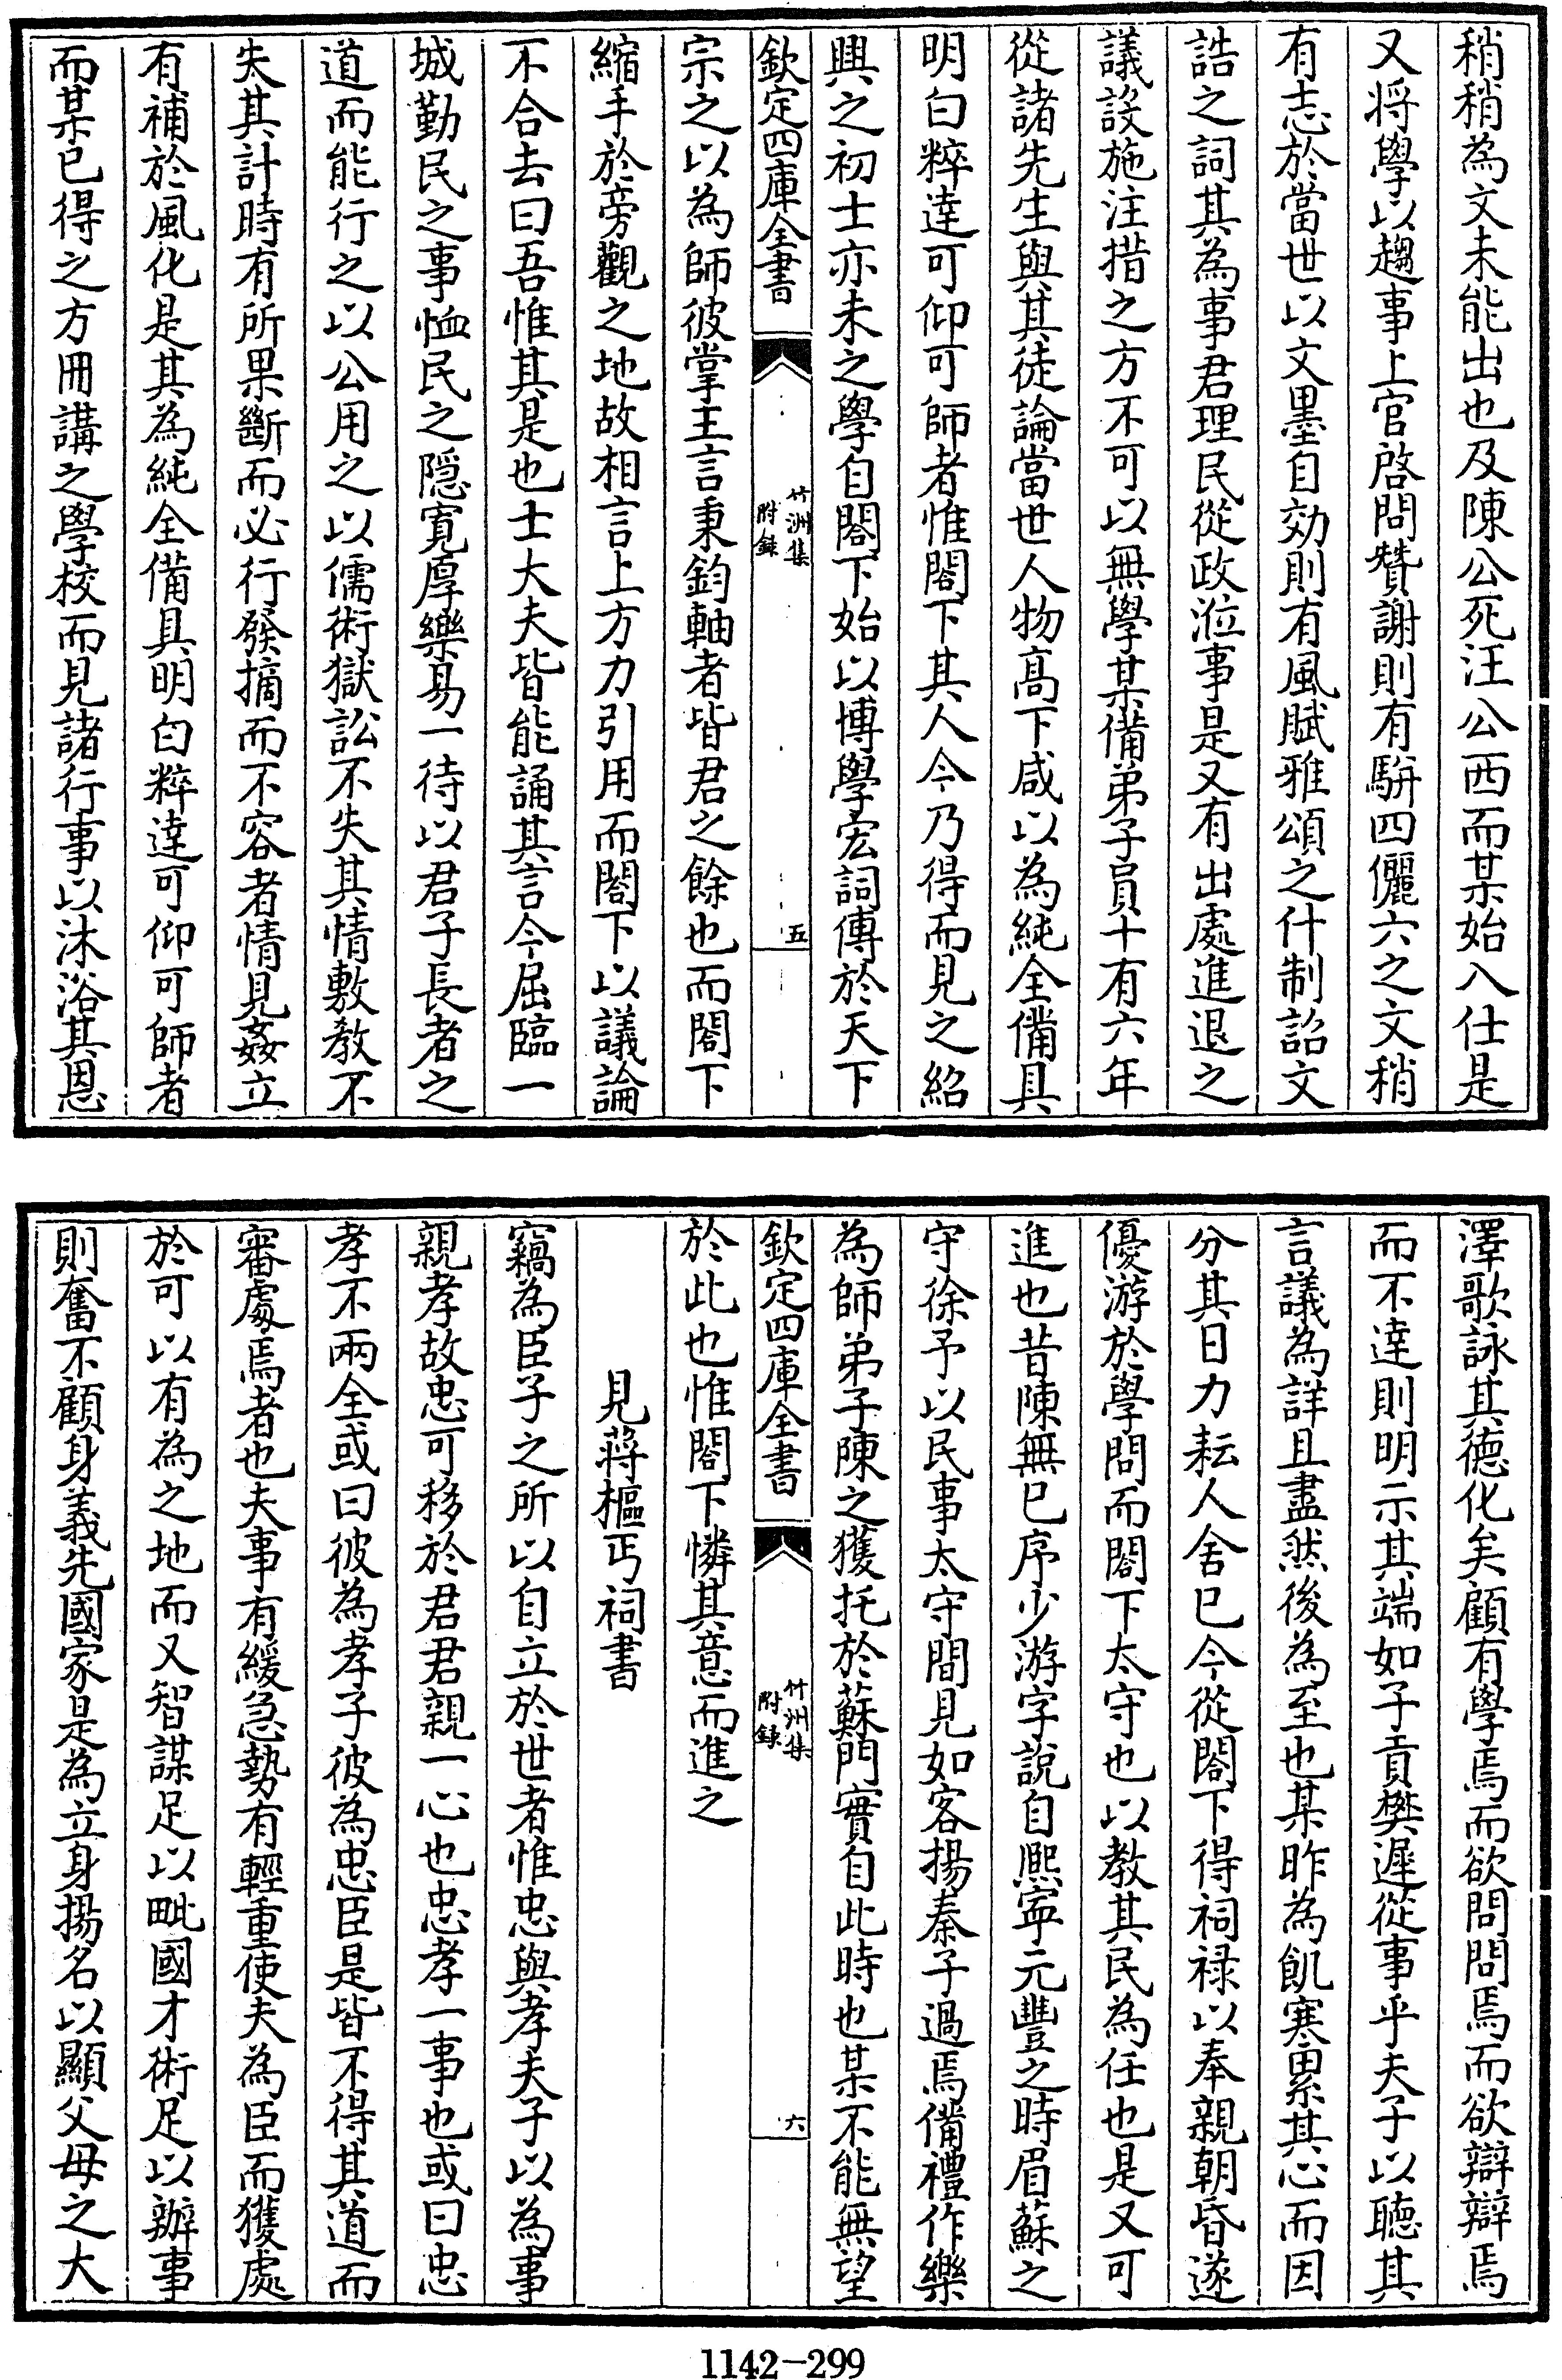 稍稍為文未能出也及陳公死汪公西而某始入仕是
又將學以趨事上官啓問贊謝則有駢四儷六之文稍
有志於當世以文墨自効則有風賦雅頌之什制詔文
誥之詞其為事君理民從政涖事是又有出處進退之
議設施注措之方不可以無學某備弟子員十有六年
從諸先生與其徒論當世人物高下咸以為純全備具
明白粹達可仰可師者惟閣下其人今乃得而見之紹
興之初士亦未之學自閣下始以博學宏詞傳於天下
欽定四庫全書
竹洲集
附錄
五
宗之以為師彼掌王言秉鈞軸者皆君之餘也而閣下
縮手於旁觀之地故相言上方力引用而閣下以議論
不合去曰吾惟其是也士大夫皆能誦其言今屈臨一
城勤民之事恤民之隱寬厚樂易一待以君子長者之
道而能行之以公用之以儒術獄訟不失其情敷教不
失其計時有所果斷而必行發摘而不容者情見姦立
有補於風化是其為純全備具明白粹達可仰可師者
而某已得之方冊講之學校而見諸行事以沐浴其恩
澤歌詠其德化矣顧有學焉而欲問問焉而欲辯辯焉
而不達則明示其端如子貢樊遲從事乎夫子以聽其
言議為詳且盡然後為至也某昨為飢寒累其心而因
分其日力耘人舍已今從閣下得祠祿以奉親朝昏遂
優游於學問而閣下太守也以教其民為任也是又可
進也昔陳無已序少游字說自熙寧元豐之時眉蘇之
守徐予以民事太守間見如客揚秦子過焉備禮作樂
為師弟子陳之獲托於蘇門實自此時也某不能無望
欽定四庫全書
竹洲集
附錄
六
於此也惟閣下憐其意而進之
見蔣樞丐祠書
竊為臣子之所以自立於世者惟忠與孝夫子以為事
親孝故忠可移於君君親一心也忠孝一事也或曰忠
孝不兩全或曰彼為孝子彼為忠臣是皆不得其道而
審處焉者也夫事有緩急勢有輕重使夫為臣而獲處
於可以有為之地而又智謀足以毗國才術足以辦事
則奮不顧身義先國家是為立身揚名以顯父母之大
1142-299